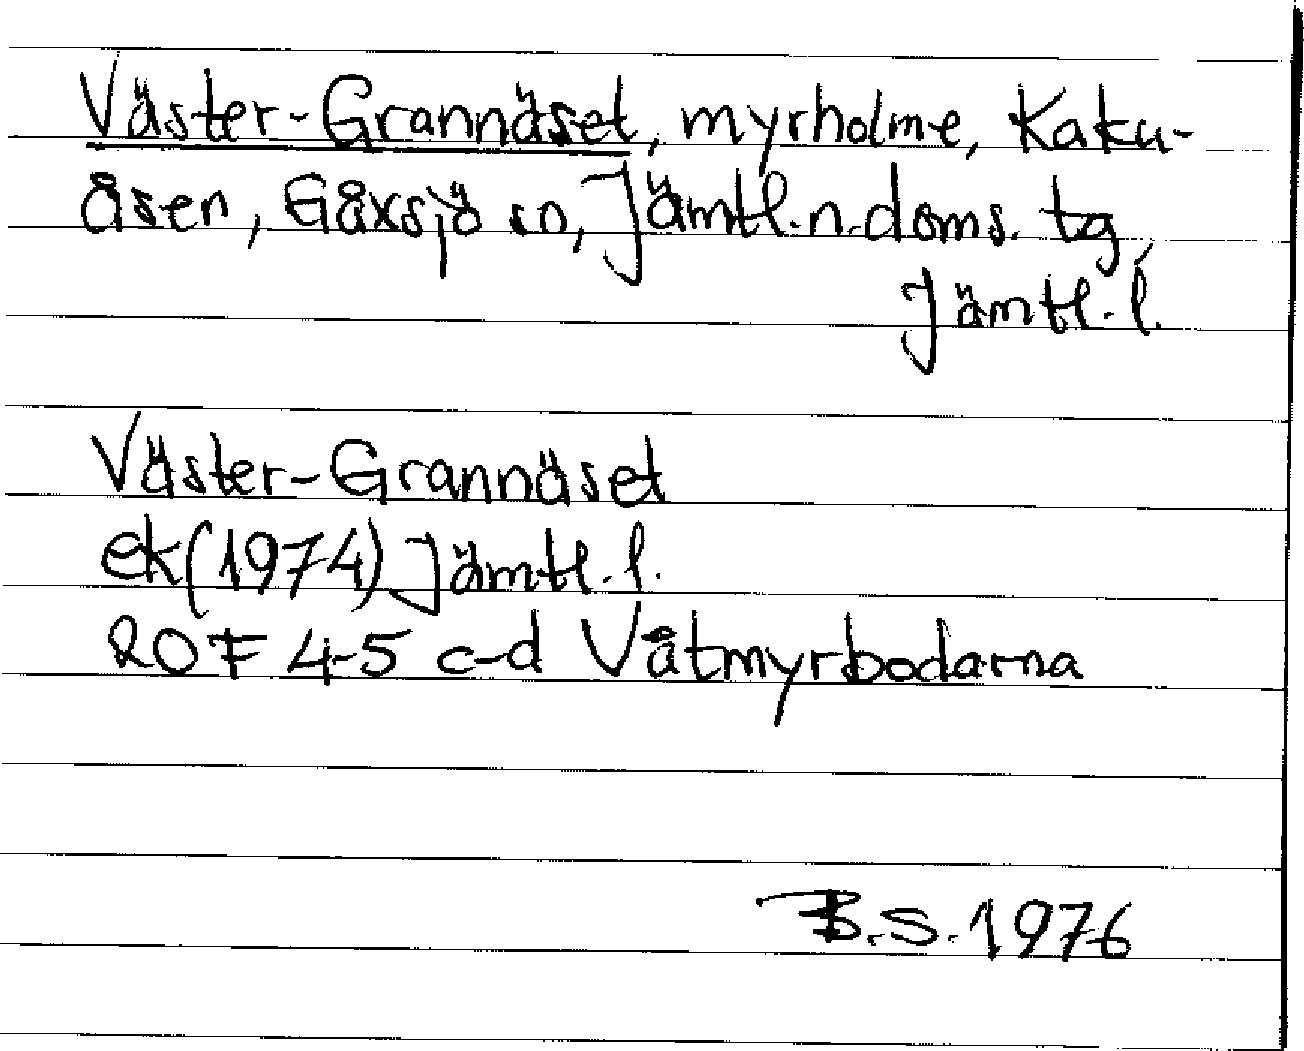 Väster-Grannäset, myrholme, Kaku-
åsen, Gåxsjö sn, Jämtl.n.doms. tg
Jämtl.l.
Väster-Grannäset
ek(1974) Jämtl.l.
ROF 4-5 c-d Våtmyrbodarna
B.S.1976